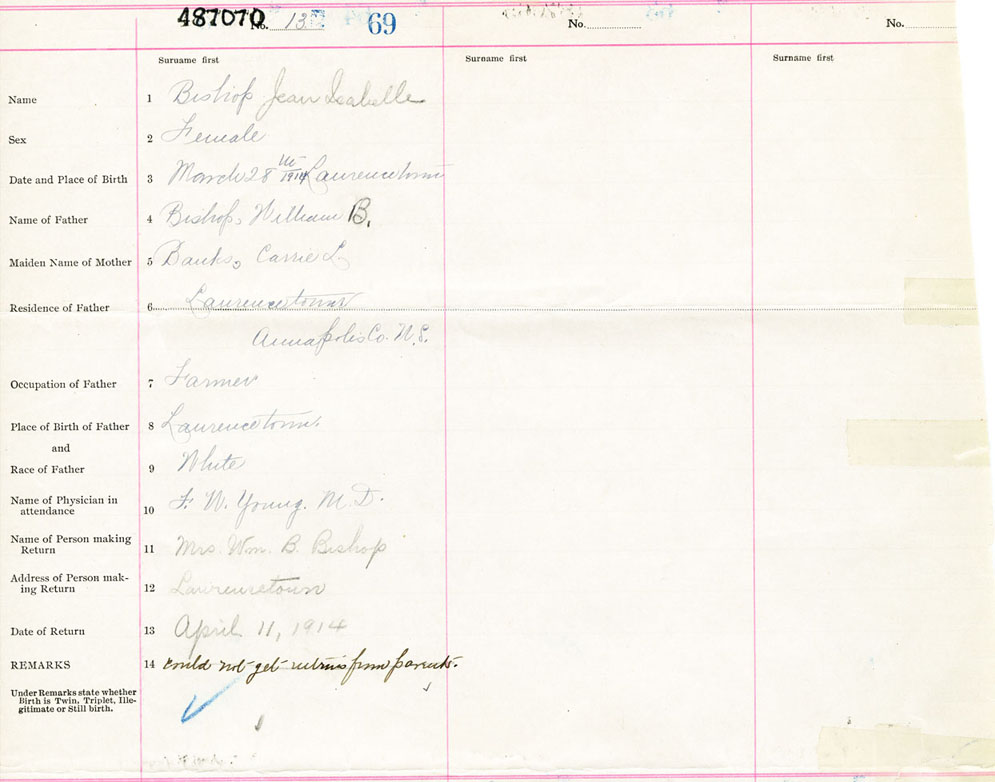 487070
No. 13 69 No. No.
Surname first Surname first Surname first
Name 1 Bishop Jean Isabelle
Sex 2 Female
Date and Place of Birth 3 March 28th 1914 Laurencetown
Name of Father 4 Bishop, William B.
Maiden Name of Mother 5 Banks, Carrie L.
Residence of Father 6 Laurencetown
Annapolis Co. N.S.
Occupation of Father 7 Farmer
Place of Birth of Father 8 Laurencetown.
and
Race of Father 9 White
Name of Physician in
attendance 10 F. W. Young. M.D.
Name of Person making
Return 11 Mrs. Wm. B. Bishop
Address of Person mak-
ing Return 12 Laurencetown
Date of Return 13 April 11, 1914
REMARKS 14 could not get returns from parents.
Under Remarks state whether
Birth is Twin, Triplet, Ille-
gitimate or Still birth.